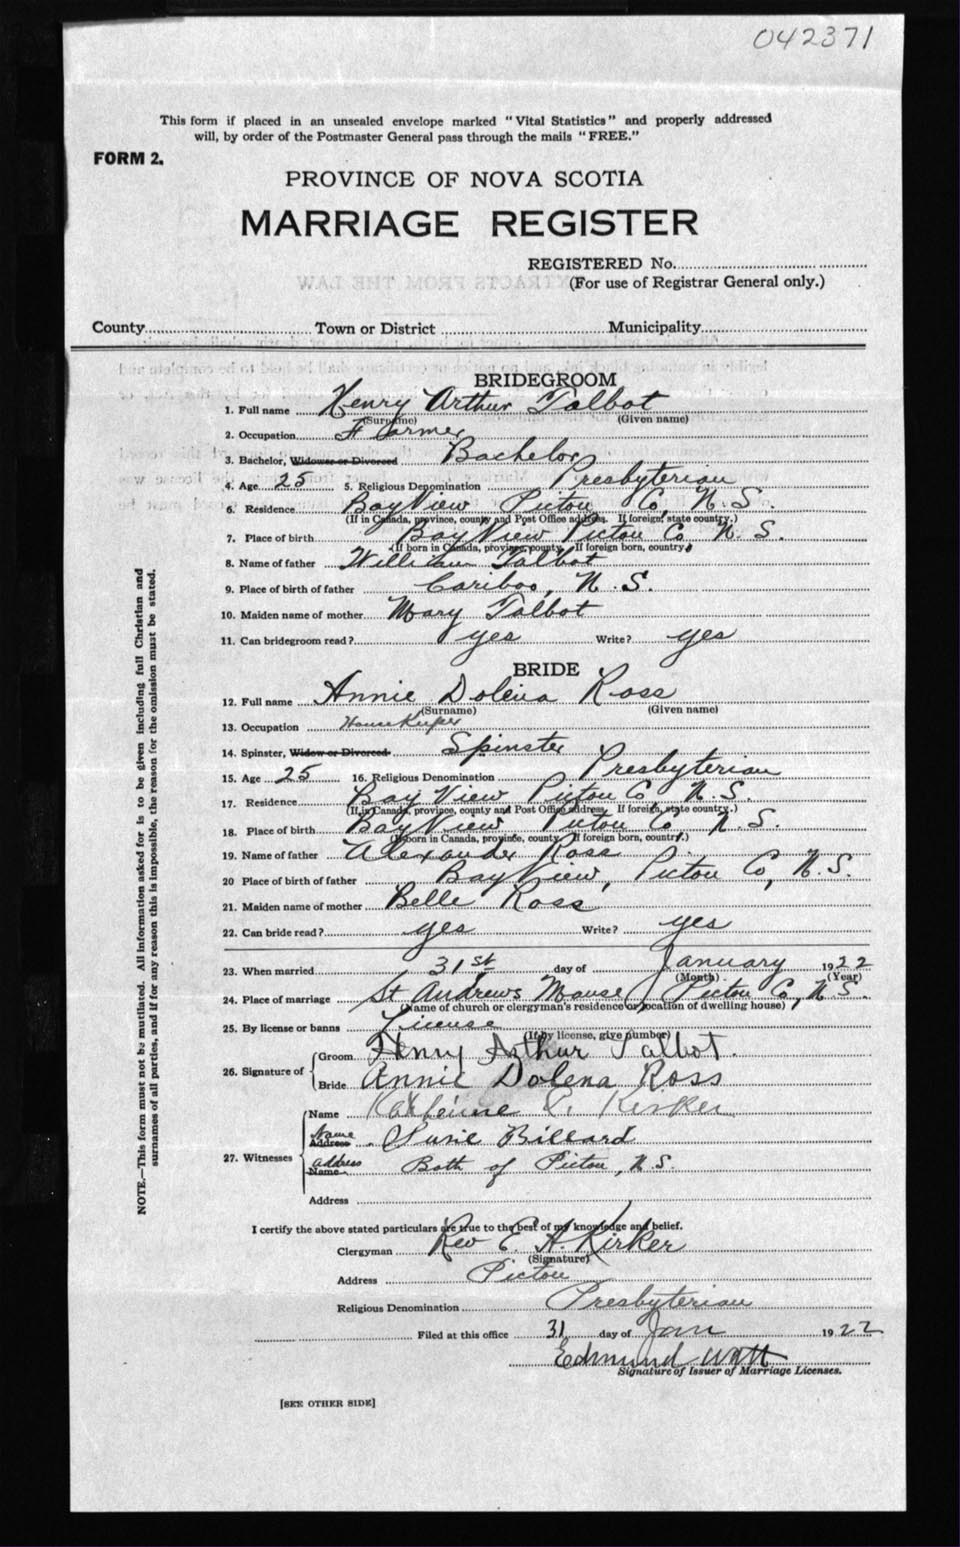 042371
This form if placed in an unsealed envelope marked "Vital Statistics" and properly addressed
will, by order of the Postmaster General pass through the mails "FREE."
FORM 2.
PROVINCE OF NOVA SCOTIA
MARRIAGE REGISTER
REGISTERED No.
(For use of Registrar General only.)
County Town or District Municipality
BRIDEGROOM
1. Full name Henry Arthur Talbot
(Surname) (Given name)
2. Occupation Farmer
3. Bachelor, Widower or Divorced Bachelor
4. Age 25 5. Religious Denomination Presbyterian
6. Residence Bay View Pictou Co, N.S.
(If in Canada, province, county and Post Office address. If foreign, state country.)
7. Place of birth Bay View Pictou Co N.S.
(If born in Canada, province, county, If foreign born, country)
8. Name of father William Talbot
9. Place of birth of father Cariboo, N.S.
10. Maiden name of mother Mary Talbot
11. Can bridegroom read? yes Write? yes
BRIDE
12. Full name Annie Dolena Ross
(Surname) (Given name)
13. Occupation House Keeper
14. Spinster, Widow or Divorced Spinster
15. Age 25 16. Religious Denomination Presbyterian
17. Residence Bay View Pictou Co, N.S.
(If in Canada, province, county and Post Office address, If foreign, state country.)
18. Place of birth Bay View Pictou Co, N.S.
(If born in Canada, province, county, If foreign born, country.)
19. Name of father Alexander Ross
20 Place of birth of father Bay View, Pictou Co, N.S.
21. Maiden name of mother Belle Ross
22. Can bride read? yes Write? yes
23. When married 31st day of January 1922
(Month) (Year)
24. Place of marriage St Andrews Manse, Pictou Co, N.S.
(Name of church or clergyman's residence or location of dwelling house)
25. By license or banns License
(If by license, give number)
26. Signature of Groom Henry Arthur Talbot.
Bride Annie Dolena Ross
27. Witnesses Name Katherine Kirker
Name Address Susie Billard
address Name Both of Pictou, N.S.
Address
I certify the above stated particulars are true to the best of my knowledge and belief.
Clergyman Rev E. A. Kirker
(Signature)
Address Pictou
Religious Denomination Presbyterian
Filed at this office 31 day of Jan 1922
Edmund
Signature of Issuer of Marriage Licenses.
[SEE OTHER SIDE]
NOTE.—This form must not be mutilated. All information asked for is to be given including full Christian and
surnames of all parties, and if for any reason this is impossible, the reason for the omission must be stated.